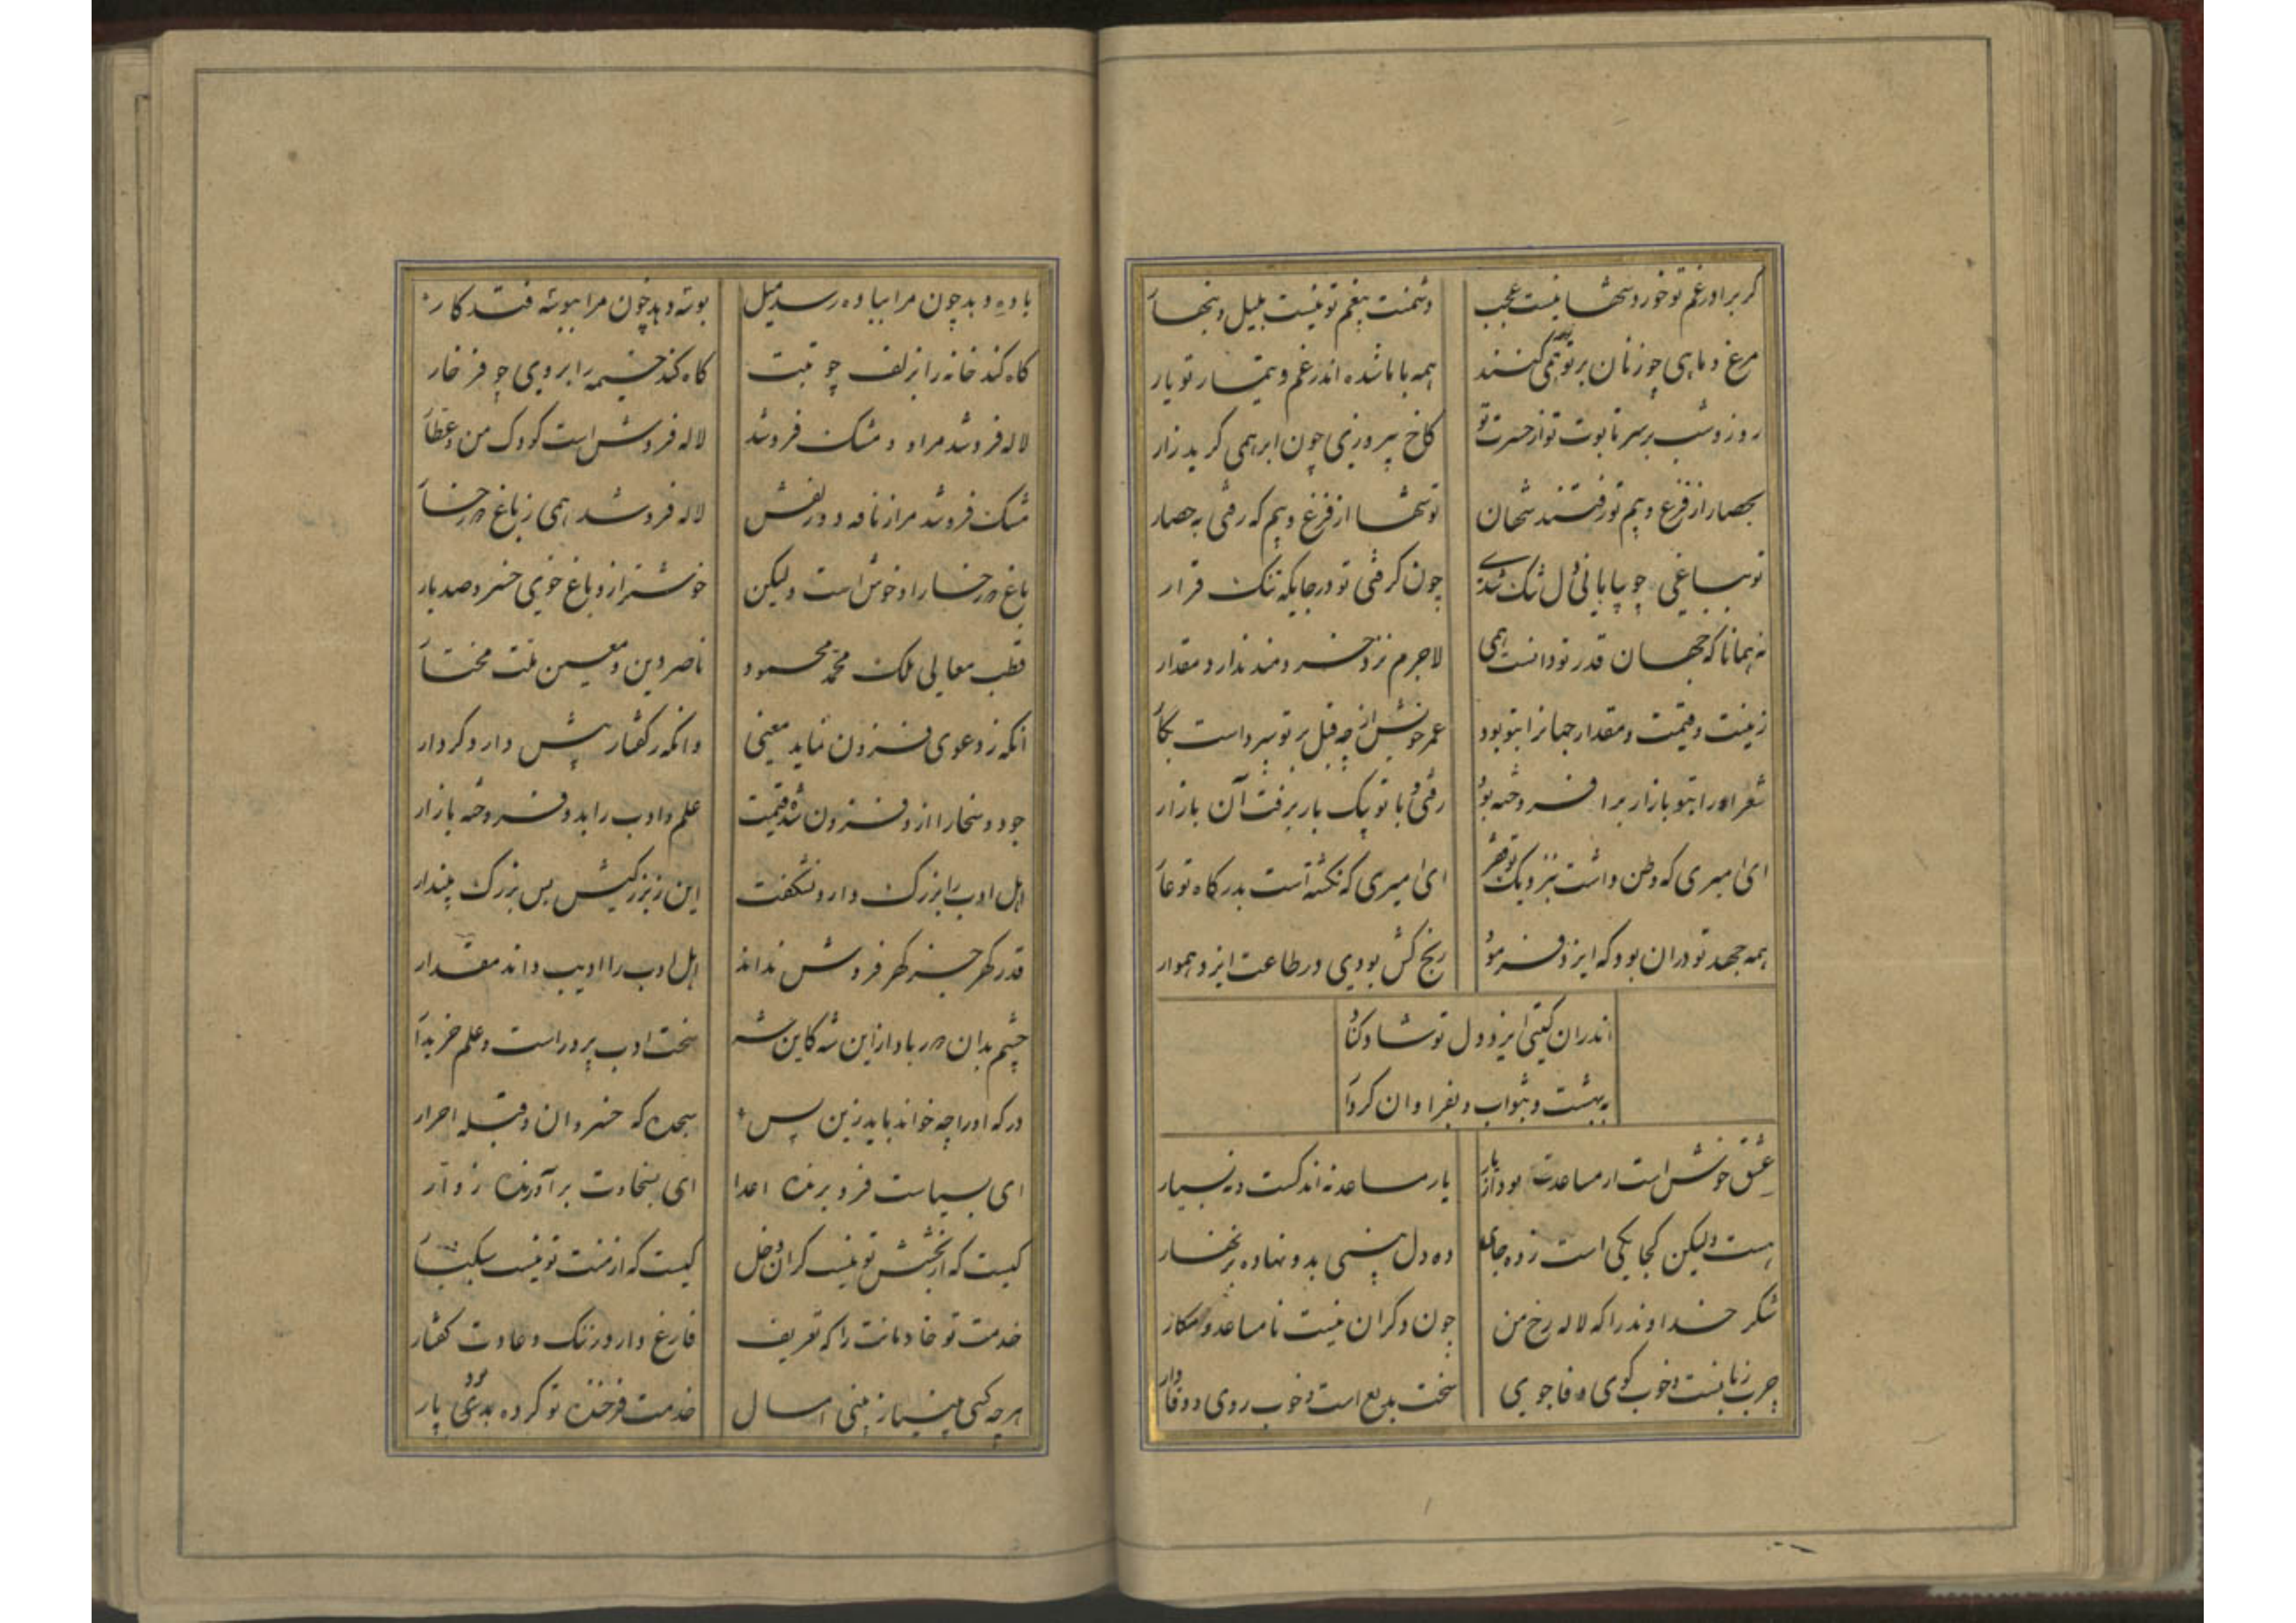 گر برادر غم تو خورد شها نیست عجب
دشمنت بیغم تو نیست بلیل و بنهار
مرغ و ماهی چو زنان بر تو همی نوحه کنند
همه با ما شده اندر غم و تیمار تو یار
روز و شب بر سر تابوت تو از حسرت تو
کاخ پیروزی چون ابر همی گرید زار
بحصار از فزع و بیم تو رفتند شهان
تو شها از فزع و بیم که رفتی به حصار
تو بباغی چو بیابانی دل تنک شدی
چون گرفتی تو در جایکه تنک قرار
نه همانا که جهان قدر تو دانست همی
لاجرم نزد خردمند ندارد مقدار
زینت و قیمت و مقدار جهانرا بتو بود
شعرا را بتو بازار برافروخته بود
رفتی و با تو بیک بار برفت آن بازار
ای امیری که وطن داشت بنزدیک تو فخر
ای امیری که نگشته است بدرگاه تو عار
همه جهد تو دران بود که ایزد فرمود
رنج کش بودی در طاعت ایزد هموار
اندران گیتی ایزد دل تو شاد کناد
به بهشت و بثواب و بفراوان کردار
عشق خوش است ار مساعدت بود از یار
یار مساعد نه اندکست و نه بسیار
هست ولیکن کجا یکی است ز ده جای
ده دل بینی بدو نهاده بزنهار
شکر خداوند را که لاله رخ من
چون دگران نیست نامساعد و مکار
چرب زبانست و خوب گوی و وفا جوی
سخت بدیع است و خوب روی و وفادار
باده دهد چون مرا بباده رسد میل
بوسه دهد چون مرا ببوسه فتد کار
گاه کند خانه را بزلف چو تبت
گاه کند خیمه را بروی چو فرخار
لاله فروشد مرا و و مشک فروشد
لاله فروش است کودک من و عطار
مشک فروشد مرا ز نافه دو زلفش
لاله فروشد همی ز باغ دو رخسار
باغ دو رخسار او خوش است ولیکن
خوشتر از و باغ خوی خسرو صد بار
قطب معالی ملک محمد محمود
ناصر دین و معین ملت مختار
آنکه ز دعوی فزون نماید معنی
وانکه ز گفتار بیش دارد کردار
جود و سخا را از و فزون شده قیمت
علم و ادب را بدو فروخته بازار
اهل ادب را بزرک دارد و نشگفت
این ز بزرگیش بس بزرک مپندار
قدر گهر جز گهر فروش نداند
اهل ادب را ادیب داند مقدار
چشم بدان دور باد ازین شه کاین شه
سخت ادب پرور است و علم خریدار
درگه او را چه خواند باید زین پس
سجده گه خسروان و قبله احرار
ای بسیاست فرو برنده اعدا
ای بسخاوت برآورنده زوار
کیست که از بخشش تو نیست گران دخل
کیست که از منت تو نیست سبکبار
خدمت تو خادمانت را که تعریف
فارغ دارد ز ننک و عادت گفتار
هر چه کسی می نیاز بینی امسال
خدمت فرخنده تو کرده بدی پار